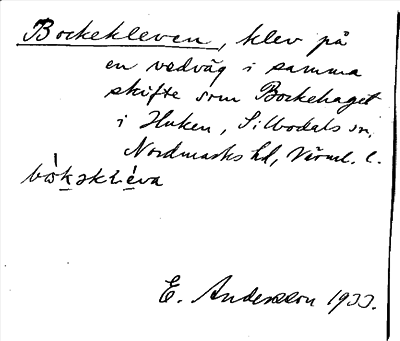 Bockekleven, klev på
en vedväg i samma
skifte som Bockehaget
i Huken, Silbodals sn,
Nordmarks hd, Värml. l.
bòkəkléva
E. Andersson 1933.